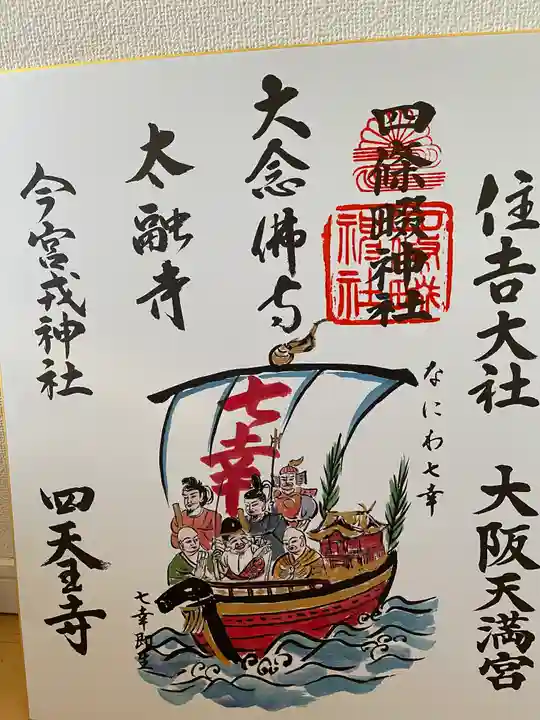 住吉大社
大阪天満宮
四條畷神社
なにわ七幸
大念佛寺
太融寺
今宮戎神社
四天王寺
七幸
七幸即生